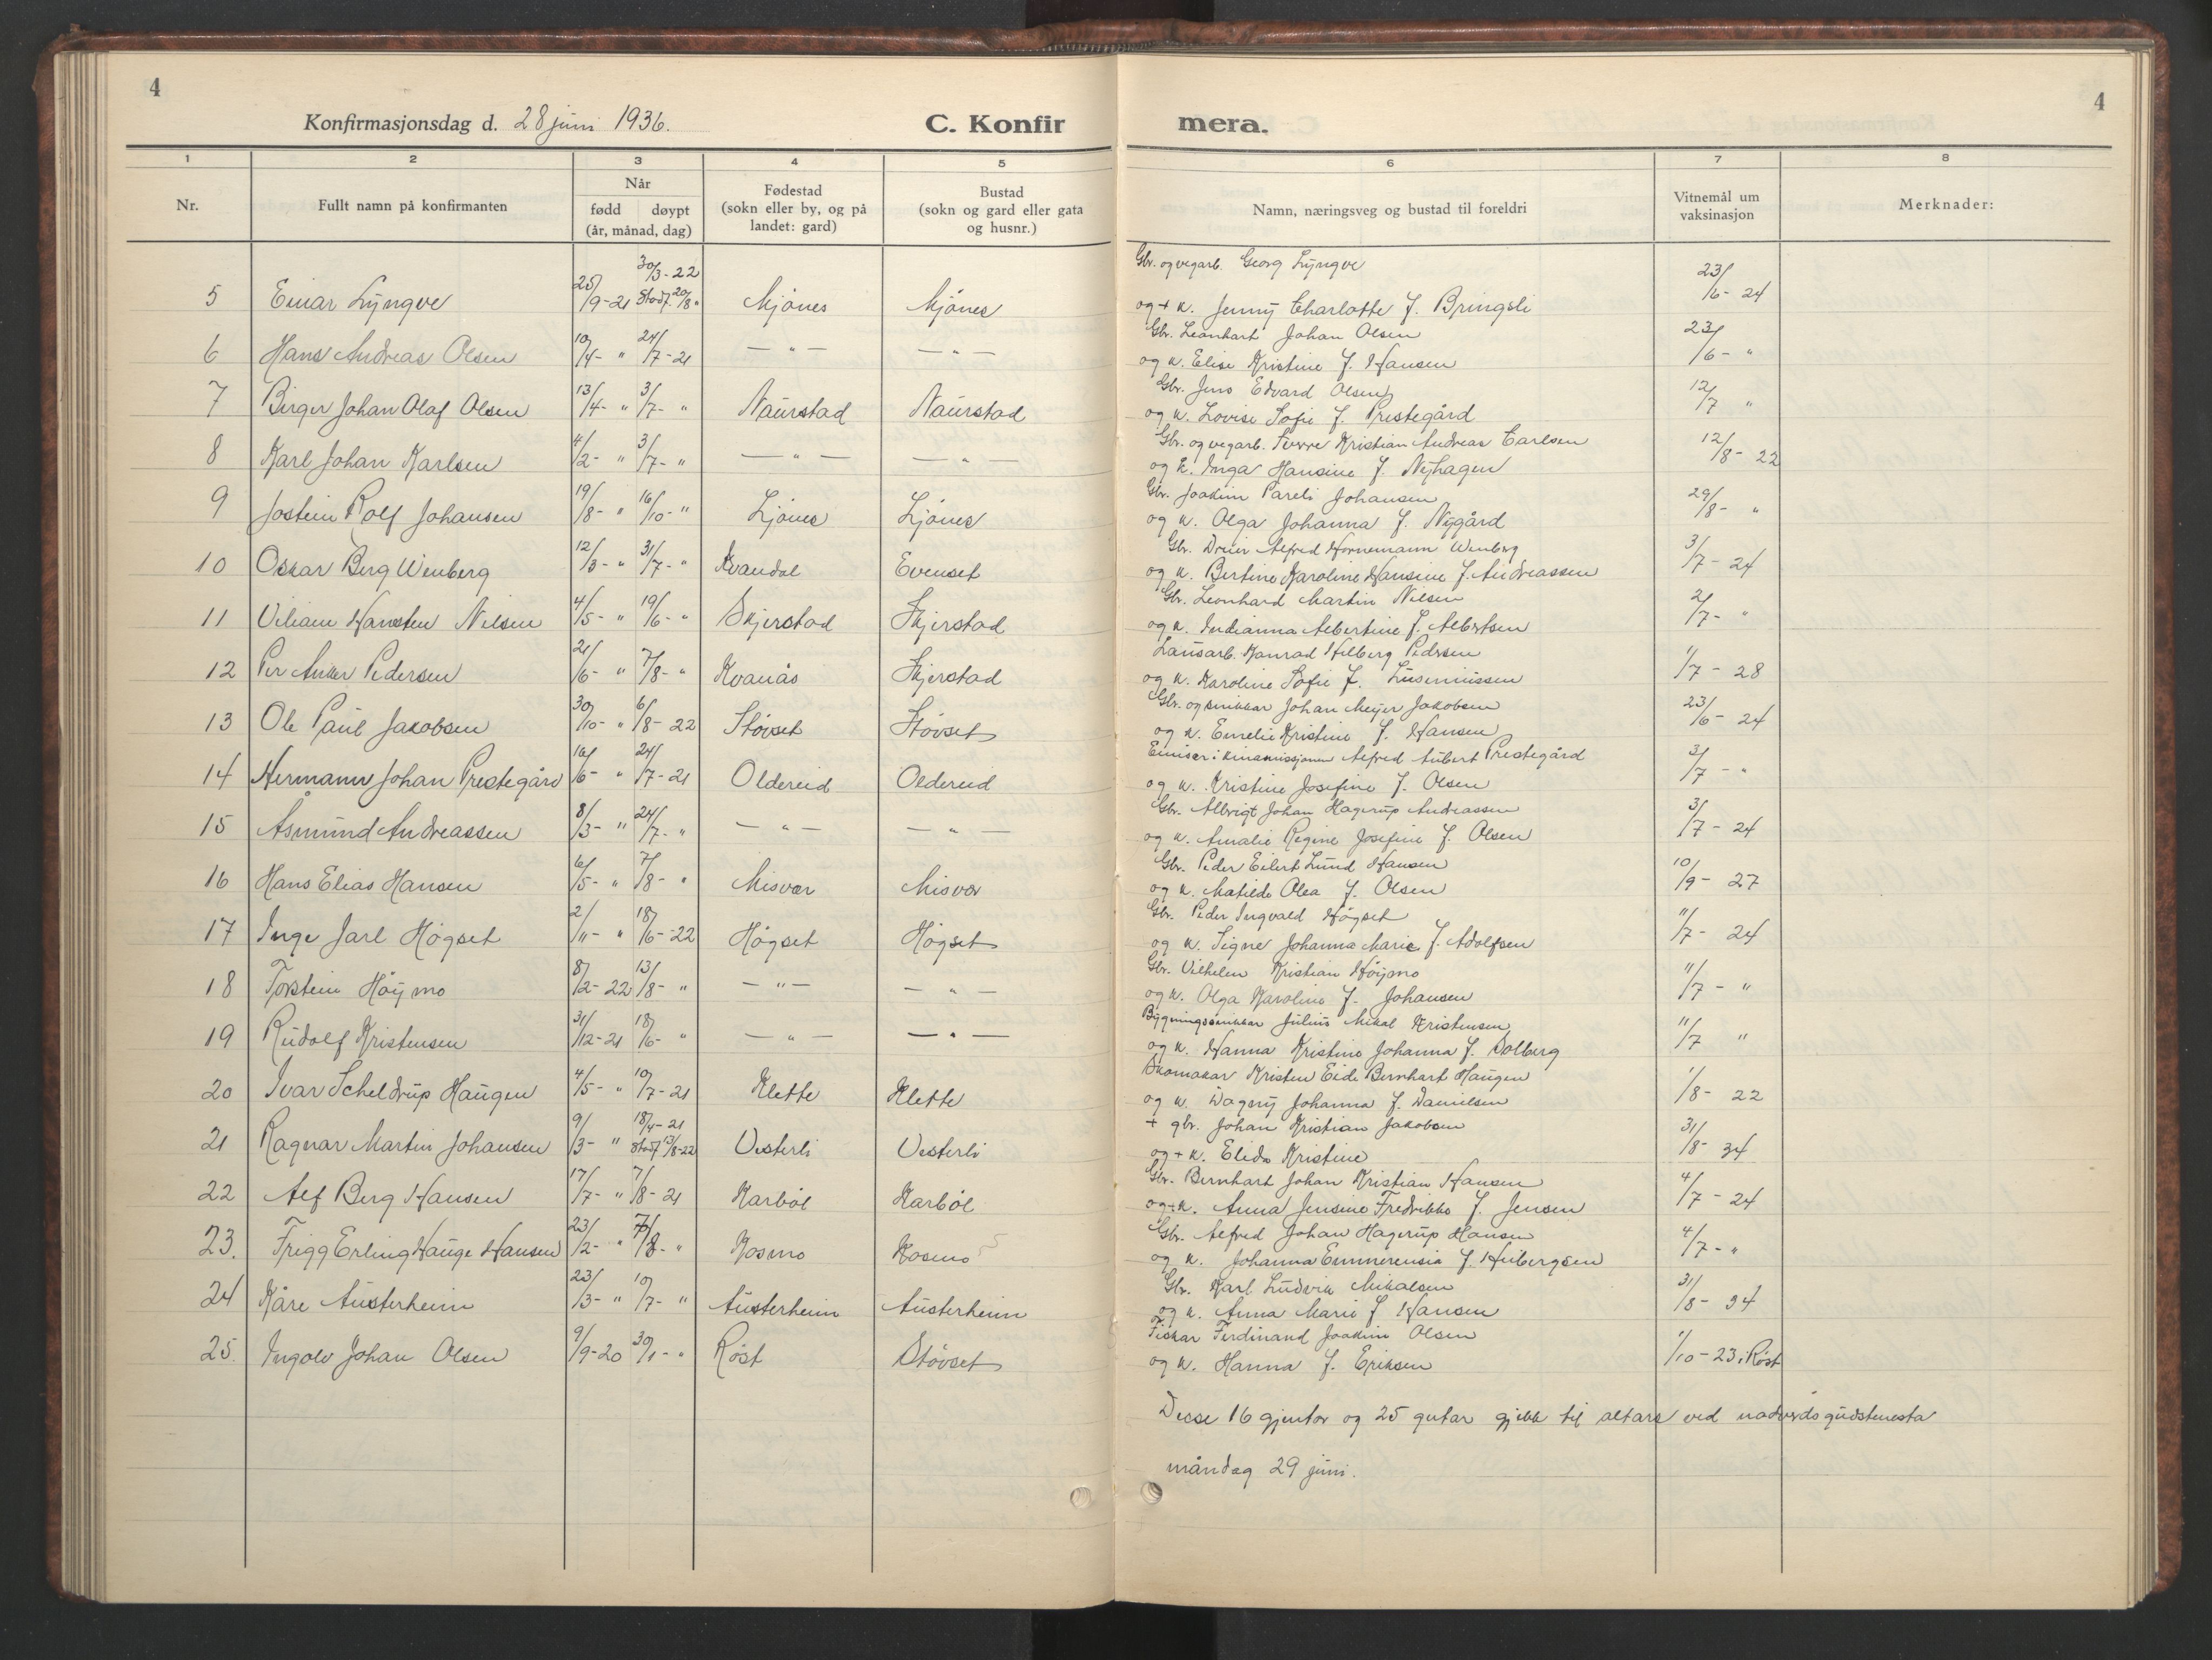 4
Konfirmasjonsdag d. 28 juni 1936.
C. Konfir
1 2 3 4 5
Nr.
Fullt namn på konfirmanten
Når
fødd døypt
(år, månad, dag)
Fødestad
(sokn eller by, og på
landet: gard)
Bustad
(sokn og gard eller gata
og husnr.)
5 Einar Lyngve 25/9-21 30/3-22 Stadf. 20/8 " Mjønes Mjønes
6 Hans Andreas Olsen 10/4- " 24/7-21 — " — — " —
7 Birger Johan Olaf Olsen 13/4- " 3/7- " Naurstad Naurstad
8 Karl Johan Karlsen 4/2- " 3/7- " — " — — " —
9 Jostein Rolf Johansen 19/8- " 16/10- " Ljønes Ljønes
10 Oskar Berg Wenberg 12/3- " 31/7- " Kvandal Evenset
11 Viliam Hansten Nilsen 4/5- " 19/6- " Skjerstad Skjerstad
12 Per Anker Pedersen 21/6- " 7/8- " Kvanås Skjerstad
13 Ole Paul Jakobsen 30/10- " 6/8-22 Støvset Støvset
14 Hermann Johan Prestegård 16/6- " 24/7-21 Oldereid Oldereid
15 Åsmund Andreassen 8/3- " 24/7- " — " — — " —
16 Hans Elias Hansen 6/5- " 7/8- " Misvær Misvær
17 Inge Jarl Høgset 2/11- " 18/6-22 Høgset Høgset
18 Torstein Høymo 8/2-22 13/8- " — " — — " —
19 Rudolf Kristensen 31/12-21 18/6- " — " — — " —
20 Ivar Scheldrup Haugen 4/5- " 10/7-21 Klette Klette
21 Ragnar Martin Johansen 9/3- " 18/4-21 Stadf. 13/8-22 Vesterli Vesterli
22 Alf Berg Hansen 17/7- " 7/8-21 Karbøl Karbøl
23. Frigg Erling Hauge Hansen 23/2- " 7/8- " Kosmo Kosmo
24 Kåre Austerheim 23/3- " 10/7- " Austerheim Austerheim
25. Ingolv Johan Olsen 9/9-20 30/1- " Røst Støvset
4
mera.
6 7 8
Namn, næringsveg og bustad til foreldri
Vitnemål um
vaksinasjon
Merknader:
Gbr. og vegarb. Georg Lyngve
og + k. Jenny Charlotte f. Bringsli 23/6-24
Gbr. Leonhart Johan Olsen
og k. Elise Kristine f. Hansen 23/6- "
Gbr. Jens Edvard Olsen
og k. Lovise Sofie f. Prestegård 12/7 "
Gbr. og vegarb. Kristian Andreas Carlsen
og k. Inga Hansine f. Nyhagen 12/8-22
Gbr. Joakim Pareli Johansen
og k. Olga Johanna f. Nygård 29/8- "
Gbr. Dreier Alfred Hornemann Wenberg
og k. Bertine Karoline Hansine f. Andreassen 3/7-24
Gbr. Leonhard Martin Nilsen
og k. Indianna Albertine f. Albertsen 2/7- "
Lausarb. Konrad Hilberg Pedersen
og k. Karoline Sofie f. 1/7-28
Gbr. og snikkar Johan Meyer Jakobsen
og k. Emelie Kristine f. Hansen 23/6-24
Emisær i kinamissjonen Alfred Aubert Prestegård
og k. Kristine Josefine f. Olsen 3/7- "
Gbr. Albrigt Johan Hagerup Andreassen
og k. Amalie Regine Josefine f. Olsen 3/7-24
Gbr. Peder Eilert Lund Hansen
og k. Matilde Olea f. Olsen 10/9-27
Gbr. Peder Ingvald Høgset
og k. Signe Johanna Marie f. Adolfsen 11/7-24
Gbr. Vilhelm Kristian Høymo
og k. Olga Karoline f. Johansen 11/7- "
Bygningssnikkar Julius Mikal Kristensen
og k. Hanna Kristine Johanna f. Solberg 11/7 "
Skomakar Kristen Eide Bernhart Haugen
og k. Dagny Johanna f. Danielsen 1/8-22
+ gbr. Johan Kristian Jakobsen
og + k. Elida Kristine 31/8-34
Gbr. Bernhart Johan Kristian Hansen
og + k. Anna Jensine Fredrikke f. Jensen 4/7-24
Gbr. Alfred Johan Hagerup Hansen
og k. Johanna Emmerensia f. Hilbergsen 4/7- "
Gbr. Karl Ludvik Mikalsen
og k. Anna Marie f. Hansen 31/8-34
Fiskar Ferdinand Joakim Olsen
og k. Hanna f. Eriksen 1/10-23 i Røst
Desse 16 gjentor og 25 gutar gjekk til altars ved nadverdsgudstenesta
måndag 29 juni.